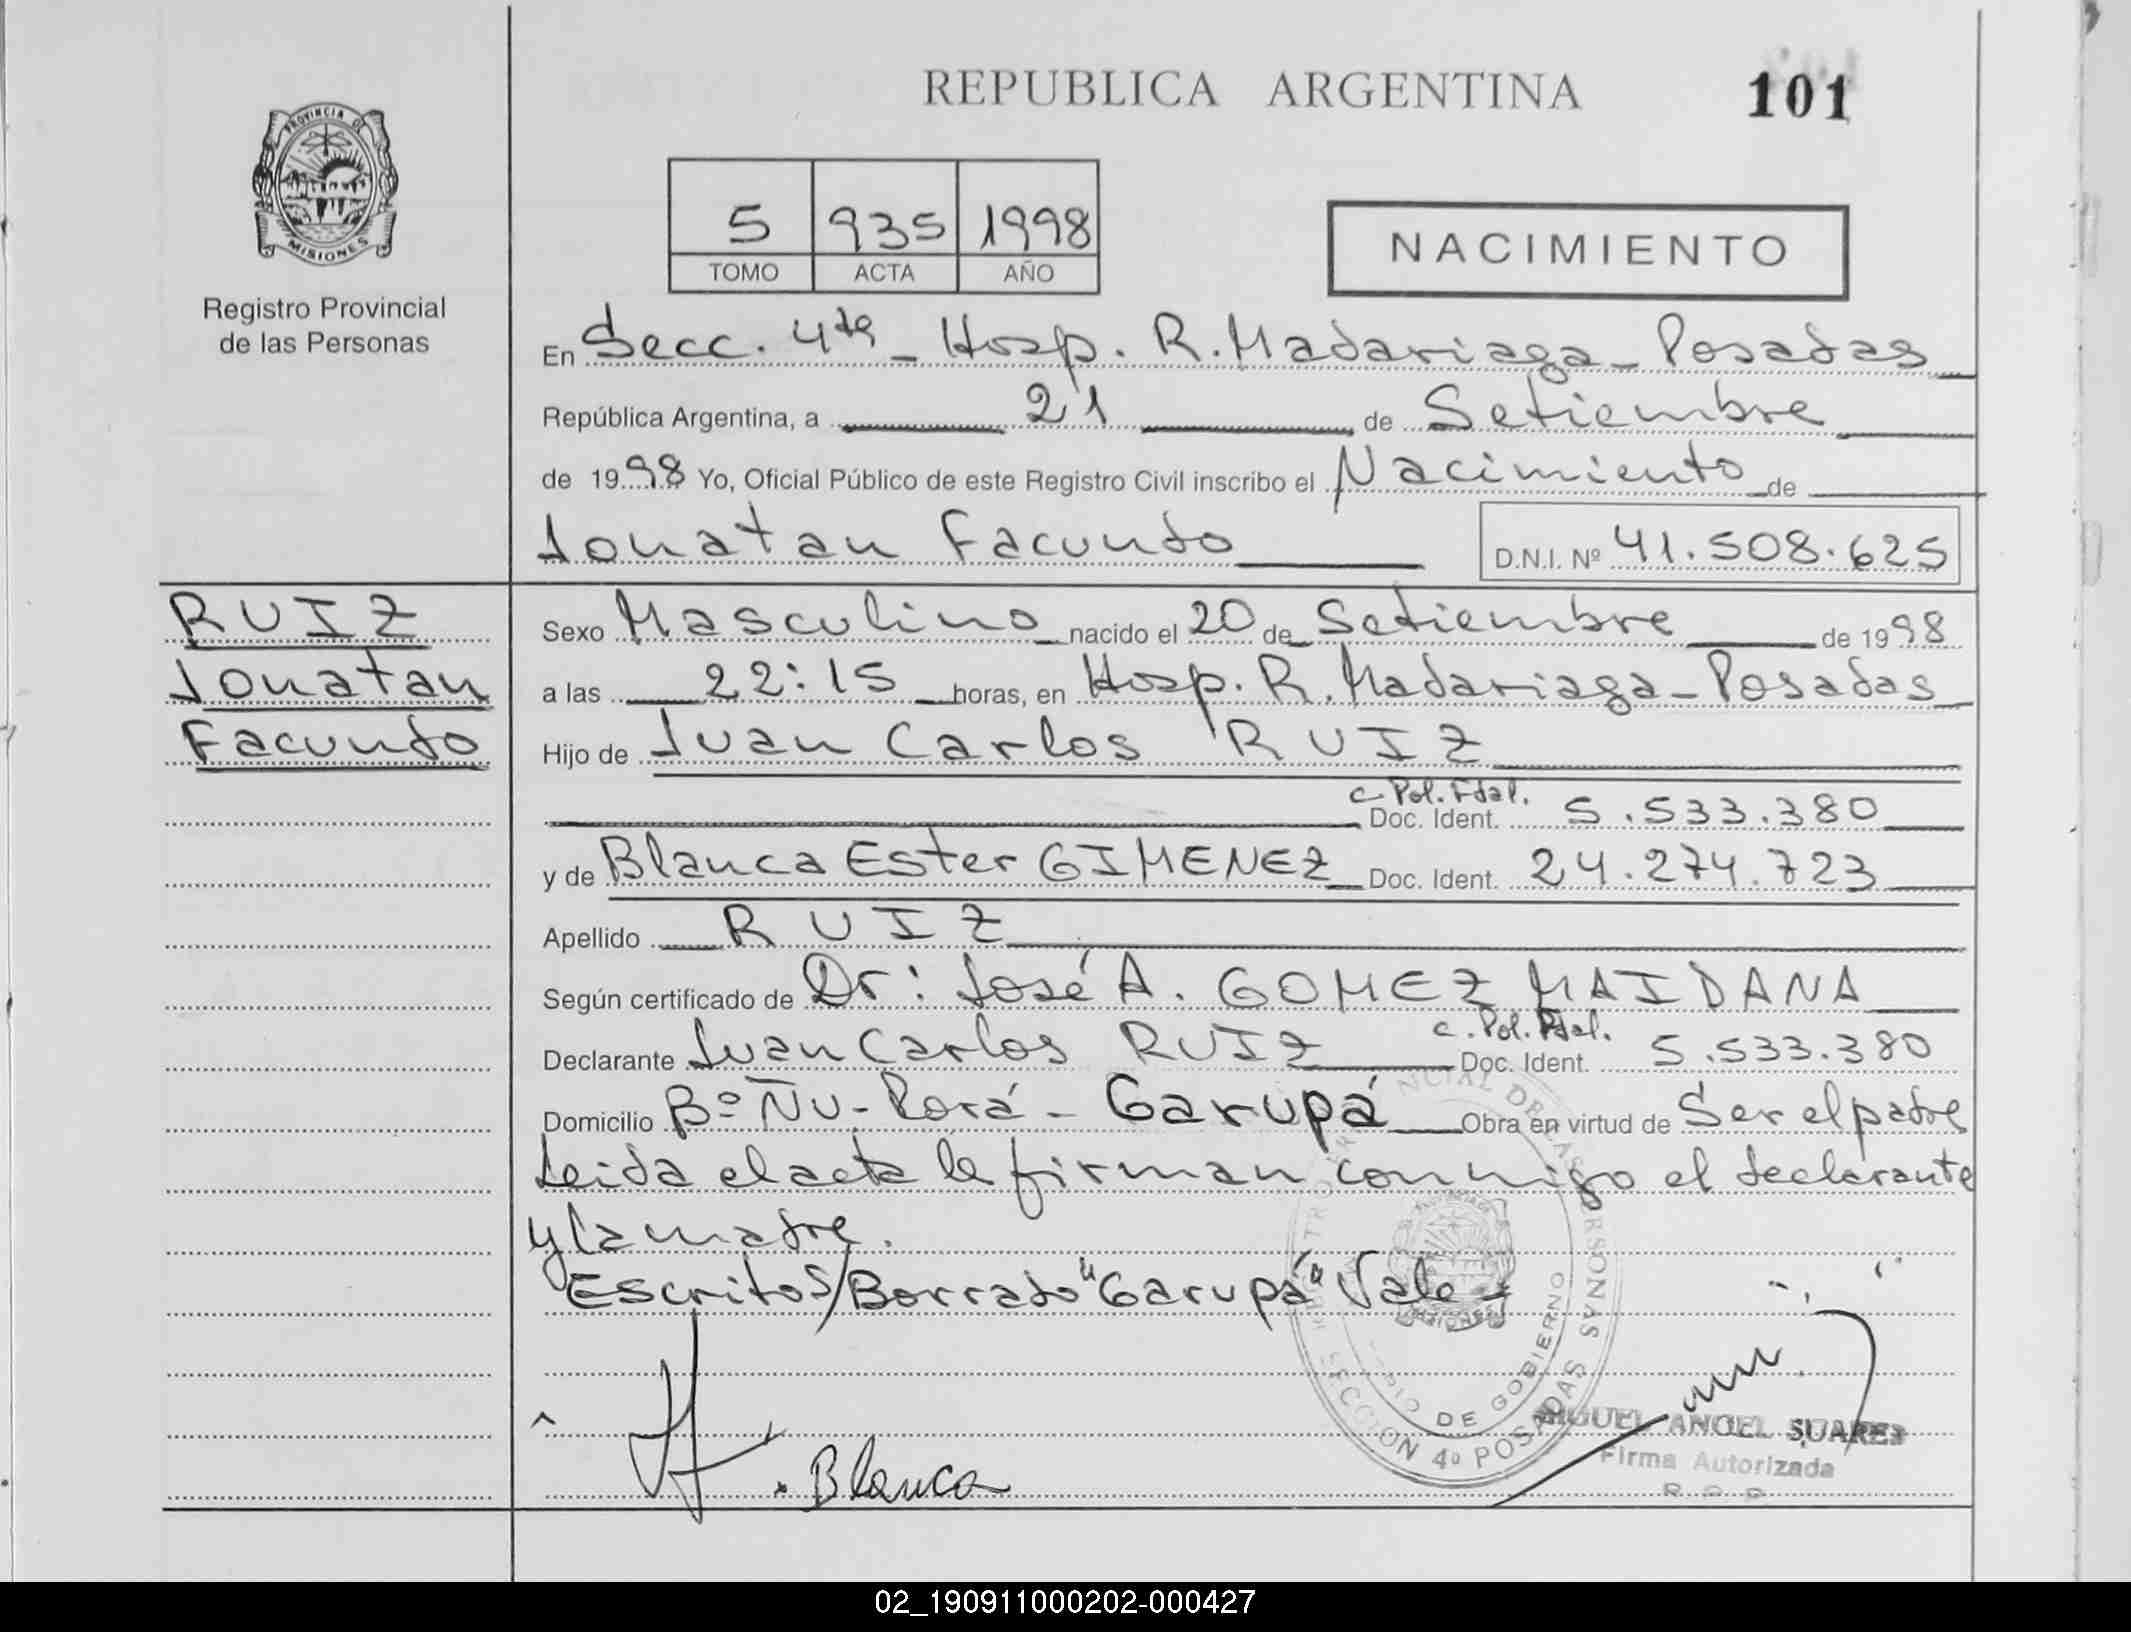 REPUBLICA ARGENTINA
101
PROVINCIA DE
MISIONES
Registro Provincial
de las Personas
5 935 1998
TOMO ACTA AÑO
NACIMIENTO
En Secc. 4ta - Hosp. R. Madariaga - Posadas
República Argentina, a 21 de Setiembre
de 1998 Yo, Oficial Público de este Registro Civil inscribo el Nacimiento de
Jonatan Facundo D.N.I. Nº 41.508.625
RUIZ
Jonatan
Facundo
Sexo Masculino nacido el 20 de Setiembre de 1998
a las 22:15 horas, en Hosp. R. Madariaga - Posadas
Hijo de Juan Carlos RUIZ
c. Pol. Fdal.
Doc. Ident. 5.533.380
y de Blanca Ester GIMENEZ Doc. Ident. 24.274.723
Apellido RUIZ
Según certificado de Dr: José A. GOMEZ MAIDANA
c. Pol. Fdal.
Declarante Juan Carlos RUIZ Doc. Ident. 5.533.380
Domicilio Bº Ñu-Porá - Garupá Obra en virtud de Ser el padre
Leida el acta la firman conmigo el declarante
y la madre.
Escrito S/Borrado "Garupá" Vale -
SECCION 4º POSADAS
DE GOBIERNO
Blanca
MIGUEL ANGEL SUAREZ
Firma Autorizada
02_190911000202-000427